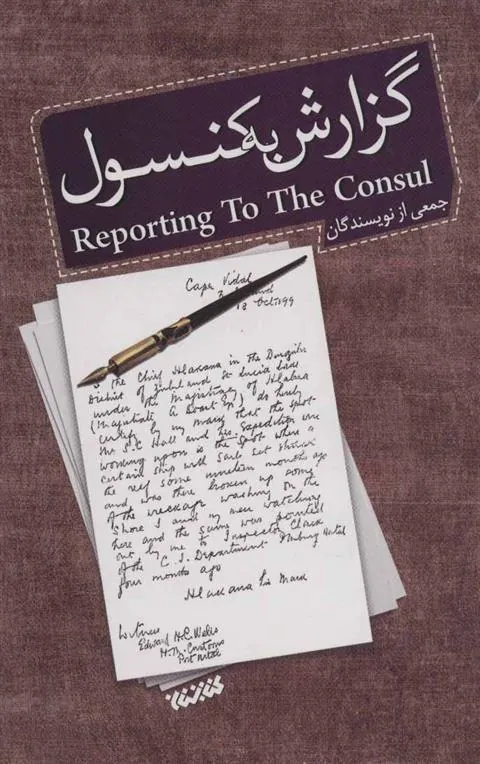 گزارش به کنسول
Reporting To The Consul
جمعی از نویسندگان
Cape Vidal
Zululand
12 Oct. 99
I the Chief Hlawana in the
District of Zululand St Lucia Lake
under the Magistracy of Hlabisa
(Magistrate), do hereby
certify by my mark that the spot
Mr S. C. Hall and his Expedition are
working upon is the spot where a
certain ship with sails set struck
the reef some nineteen months ago
and was then broken up some
of the wreckage washing on the
shore I and my men watching
here and the same was pointed
out by me to Inspector Clark
of the C. I. Department Natal
four months ago
Hlawana his Mark
Witness
Edward H. C. Wells
H. M. Customs
Port Natal
کتابستان